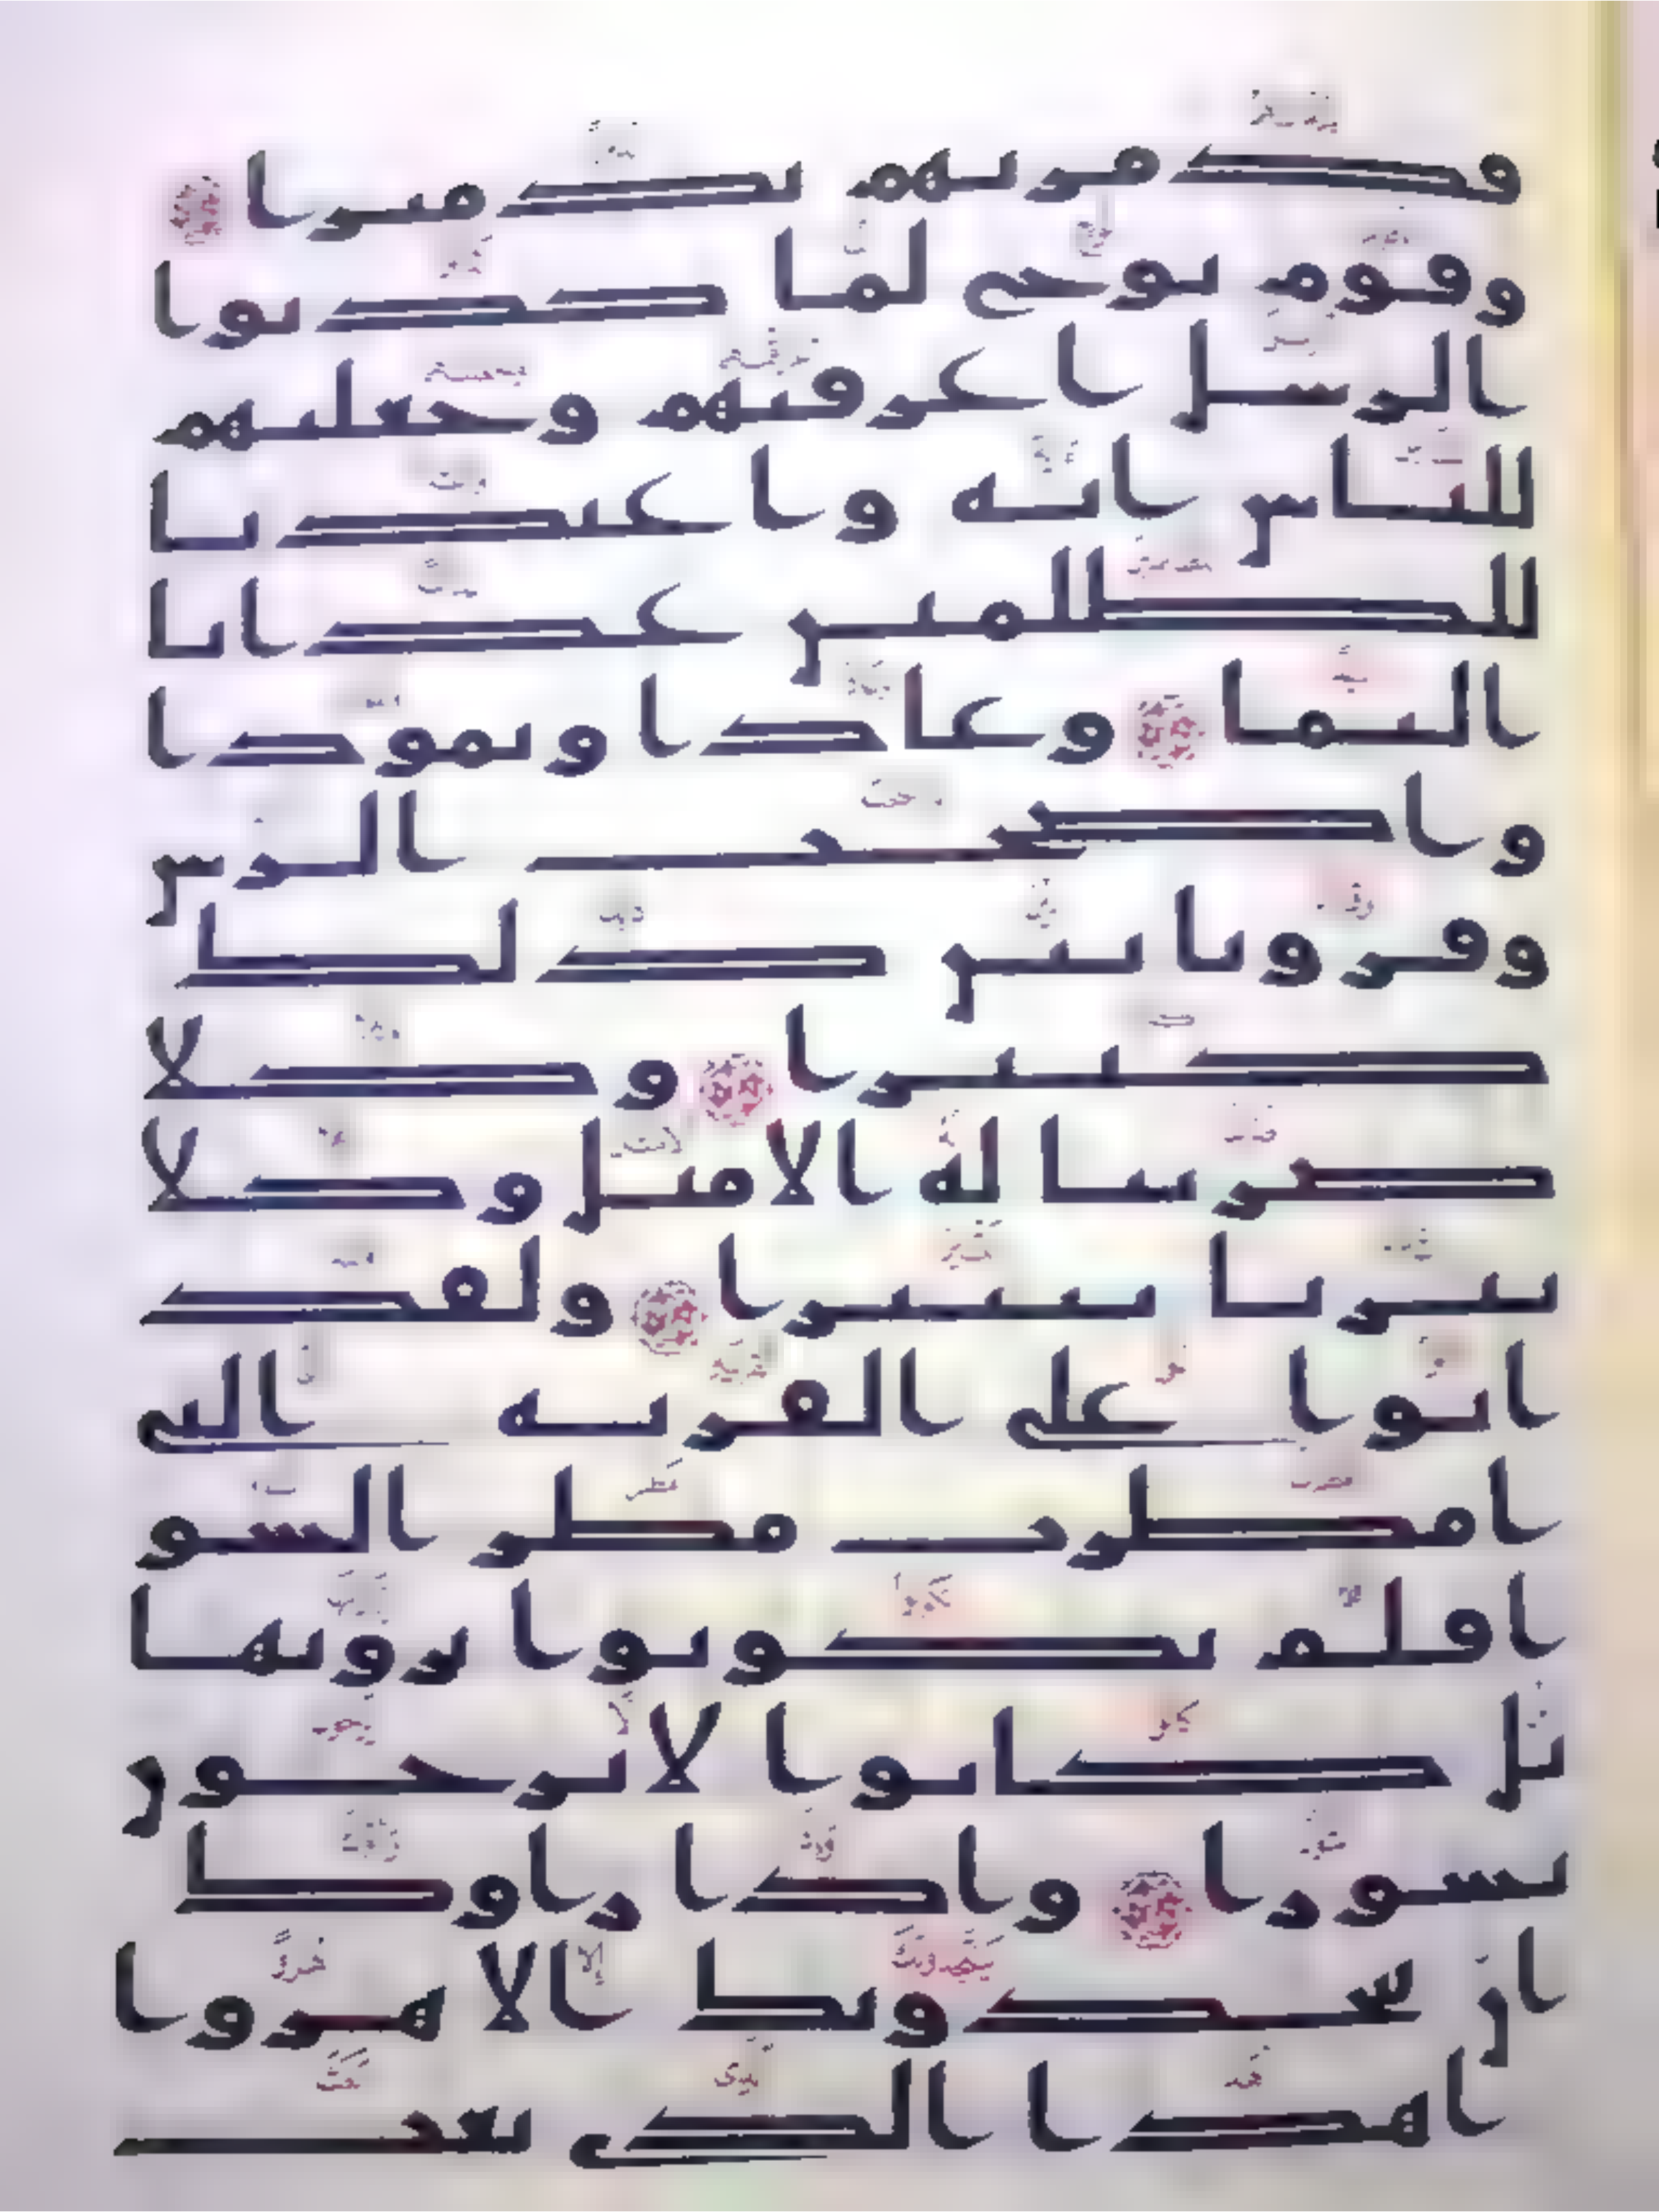 فدمرنهم تدميرا
وقوم نوح لما كذبوا
الرسل اغرقنهم وجعلنهم
للناس اية واعتدنا
للظلمين عذابا
اليما وعادا وثمودا
واصحب الرس
وقرونا بين ذلك
كثيرا وكلا
ضربنا له الامثل وكلا
تبرنا تتبيرا ولقد
اتوا على القرية التي
امطرت مطر السو
افلم يكونوا يرونها
بل كانوا لا يرجون
نشورا واذا راوك
ان يتخذونك الا هزوا
اهذا الذي بعث